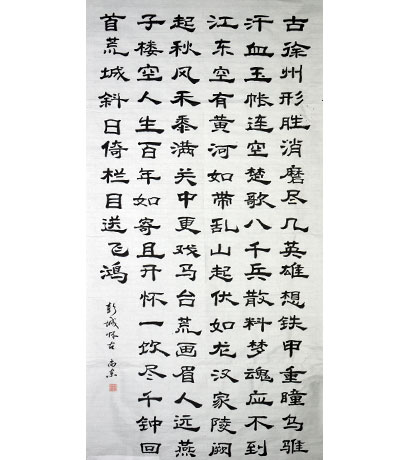 古徐州形胜消磨尽几英雄想铁甲重瞳乌骓
汗血玉帐连空楚歌八千兵散料梦魂应不到
江东空有黄河如带乱山起伏如龙汉家陵阙
起秋风禾黍满关中更戏马台荒画眉人远燕
子楼空人生百年如寄且开怀一饮尽千钟回
首荒城斜日倚栏目送飞鸿
彭城怀古